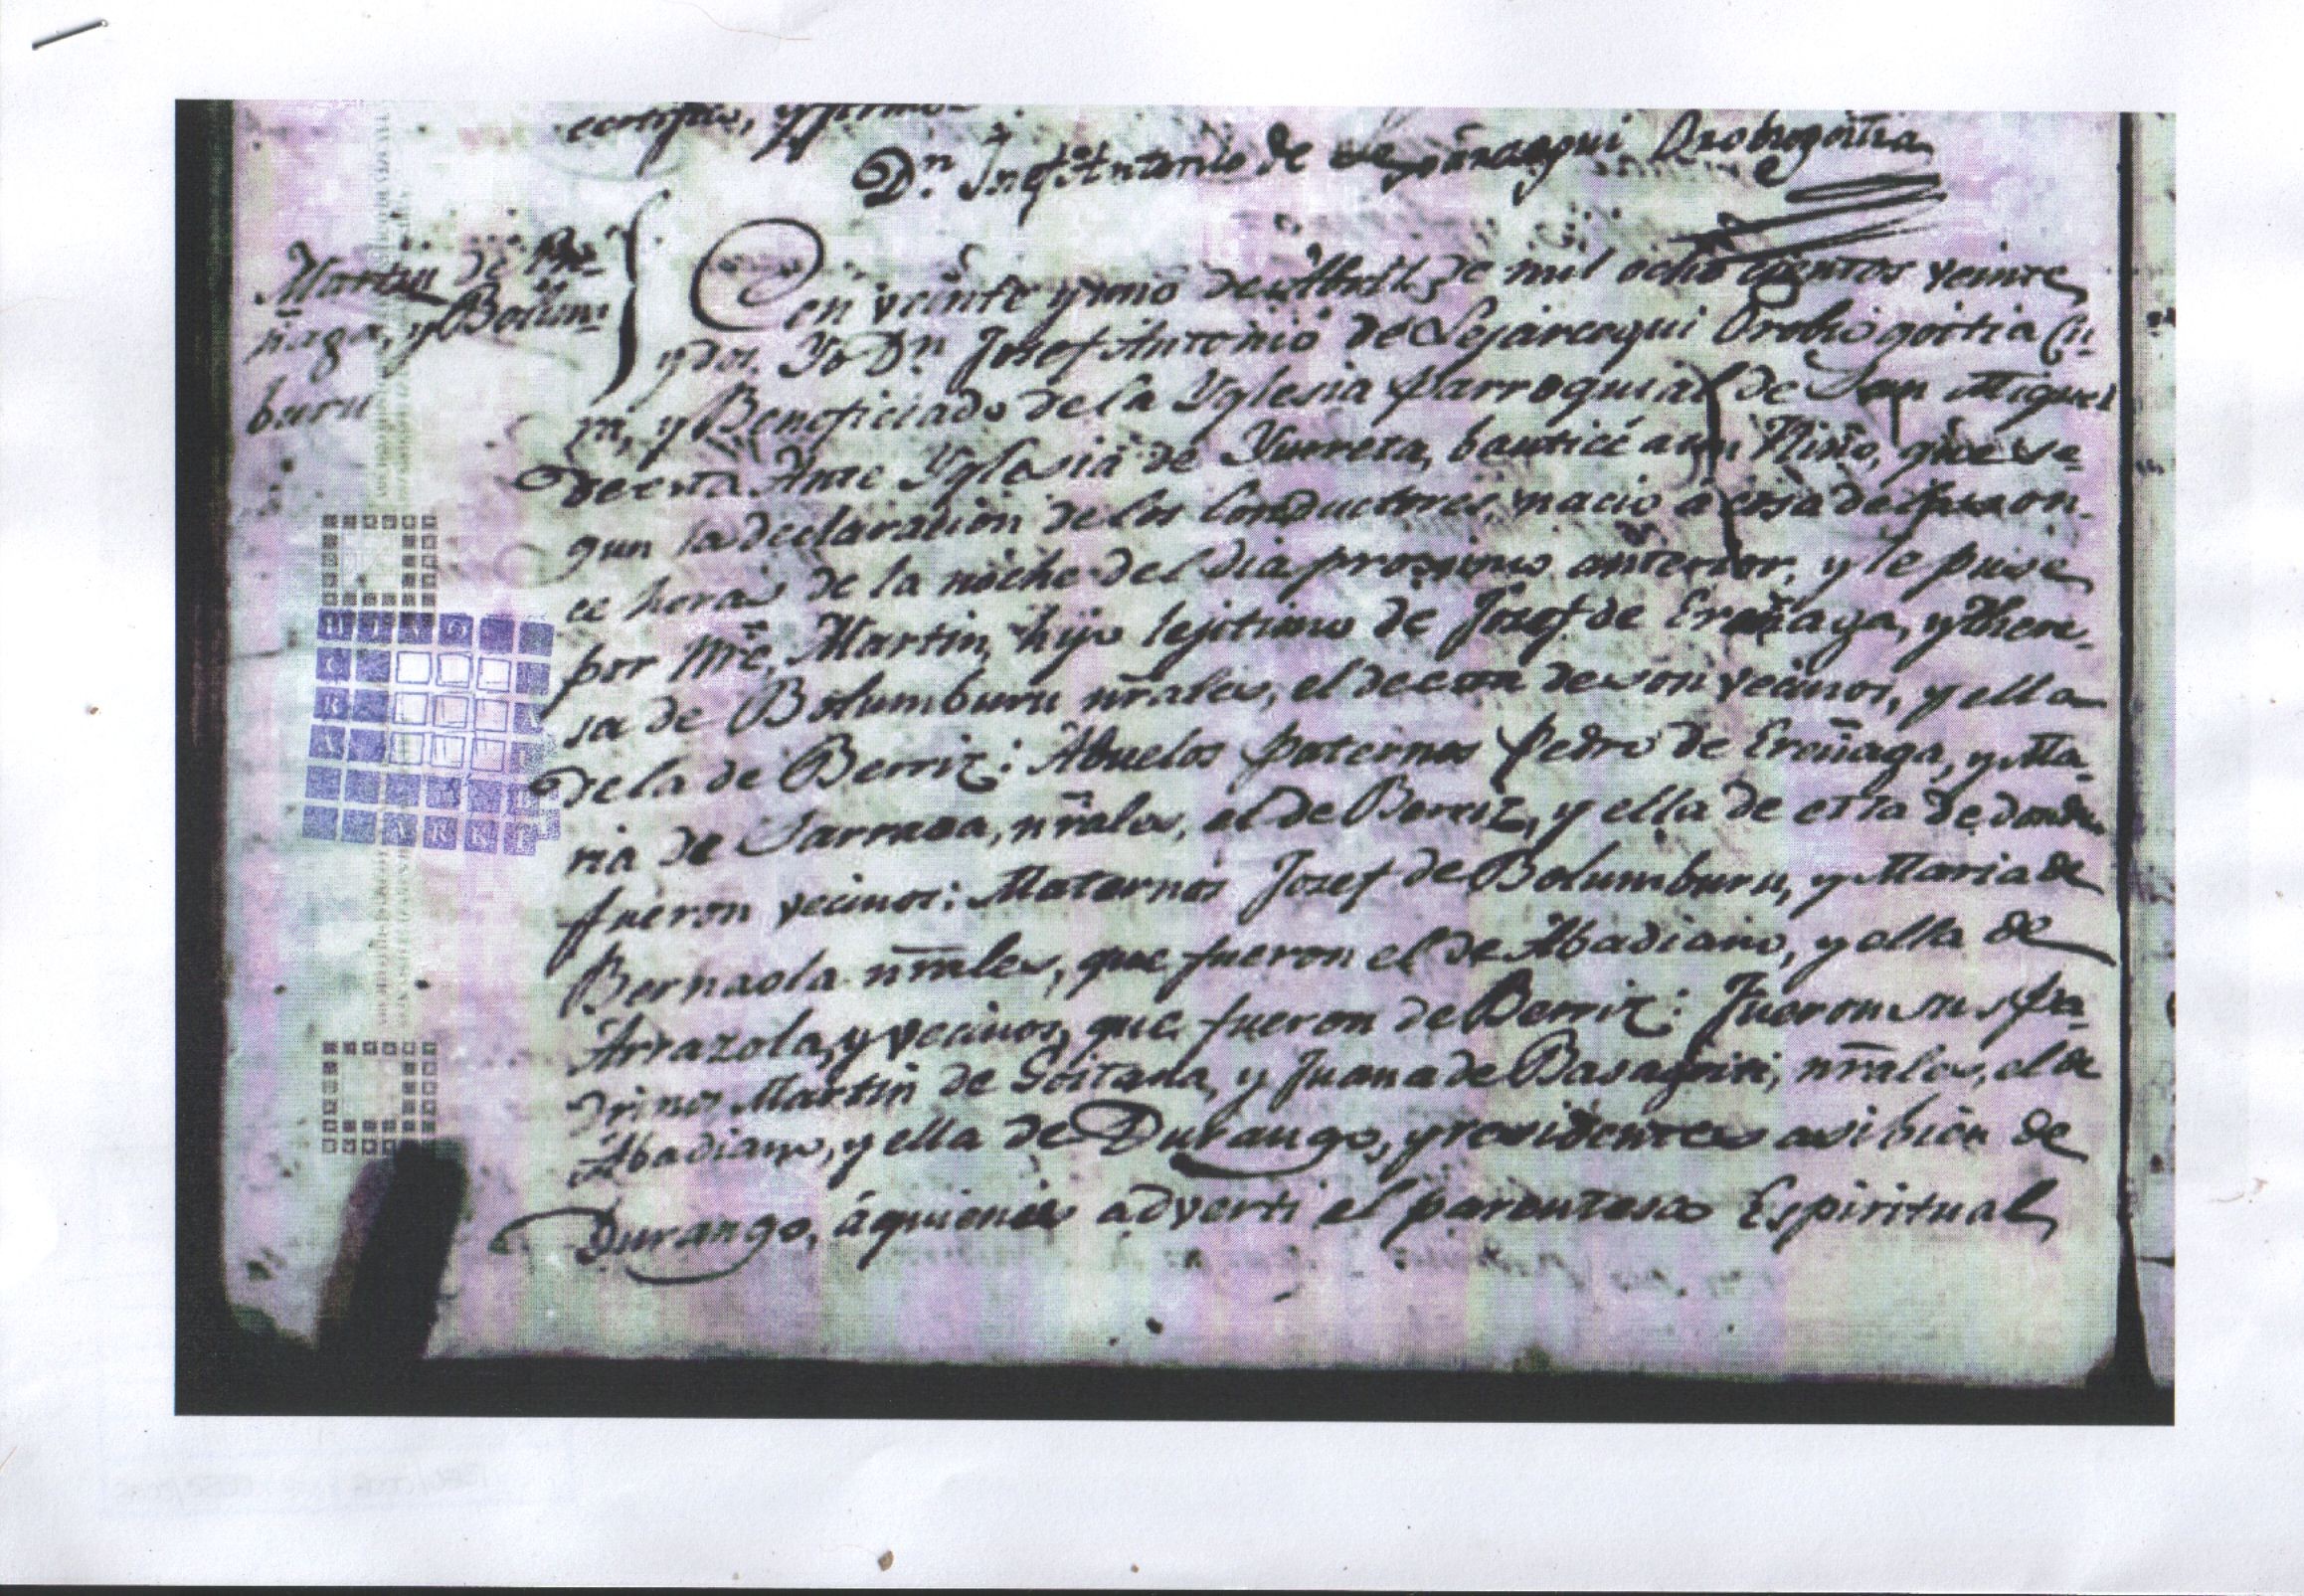 certifico, y firmo
Dn. Josef Antonio de Lejarcegui Orobiogoitia
Martin de Ere-
ñaga, y Bolum-
buru
En veinte y uno de Abril, de mil ocho cientos veinte
y dos. Yo Dn. Josef Antonio de Lejarcegui Orobiogoitia Cu-
ra, y Beneficiado de la Yglesia Parroquial de San Miguel
de esta Ante Yglesia de Yurreta, bauticé a un Niño, que se-
gun la declaracion de los Conductores, nacio á cosa de las on-
ce horas de la noche del dia proximo anterior, y le puse
por nre. Martin, hijo lejitimo de Josef de Ereñaga, y There-
sa de Bolumburu nrales, el de esta de son vecinos, y ella
de la de Berriz: Abuelos paternos Pedro de Ereñaga, y Ma-
ria de Sarrasa, nrales, el de Berriz, y ella de esta de donde
fueron vecinos: Maternos Josef de Bolumburu, y Maria de
Bernaola nrales, que fueron el de Abadiano, y ella de
Arrazola, y vecinos, que fueron de Berriz: Fueron sus Pa-
drinos Martin de Goitana, y Juana de Basagoiti, nrales, el de
Abadiano, y ella de Durango, y residentes asi bien de
Durango, á quienes adverti el parentesco Espiritual